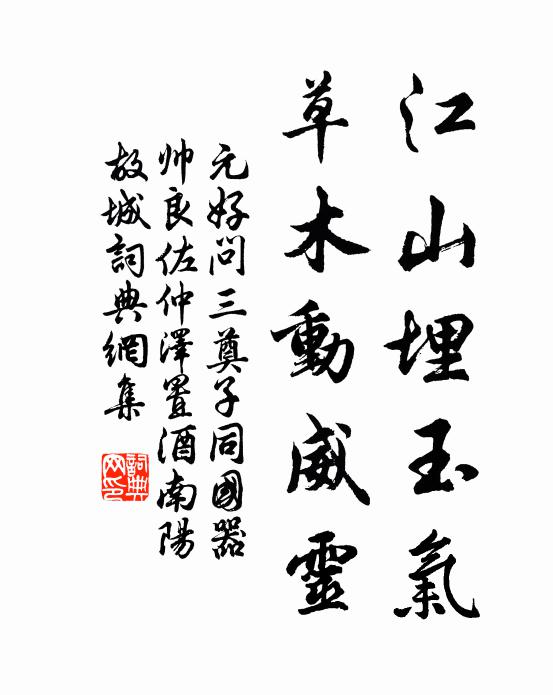 江山埋玉氣
草木動威靈
元好問三奠子同國器
帅良佐仲澤置酒南陽
故城詞典網集
詞典
网印